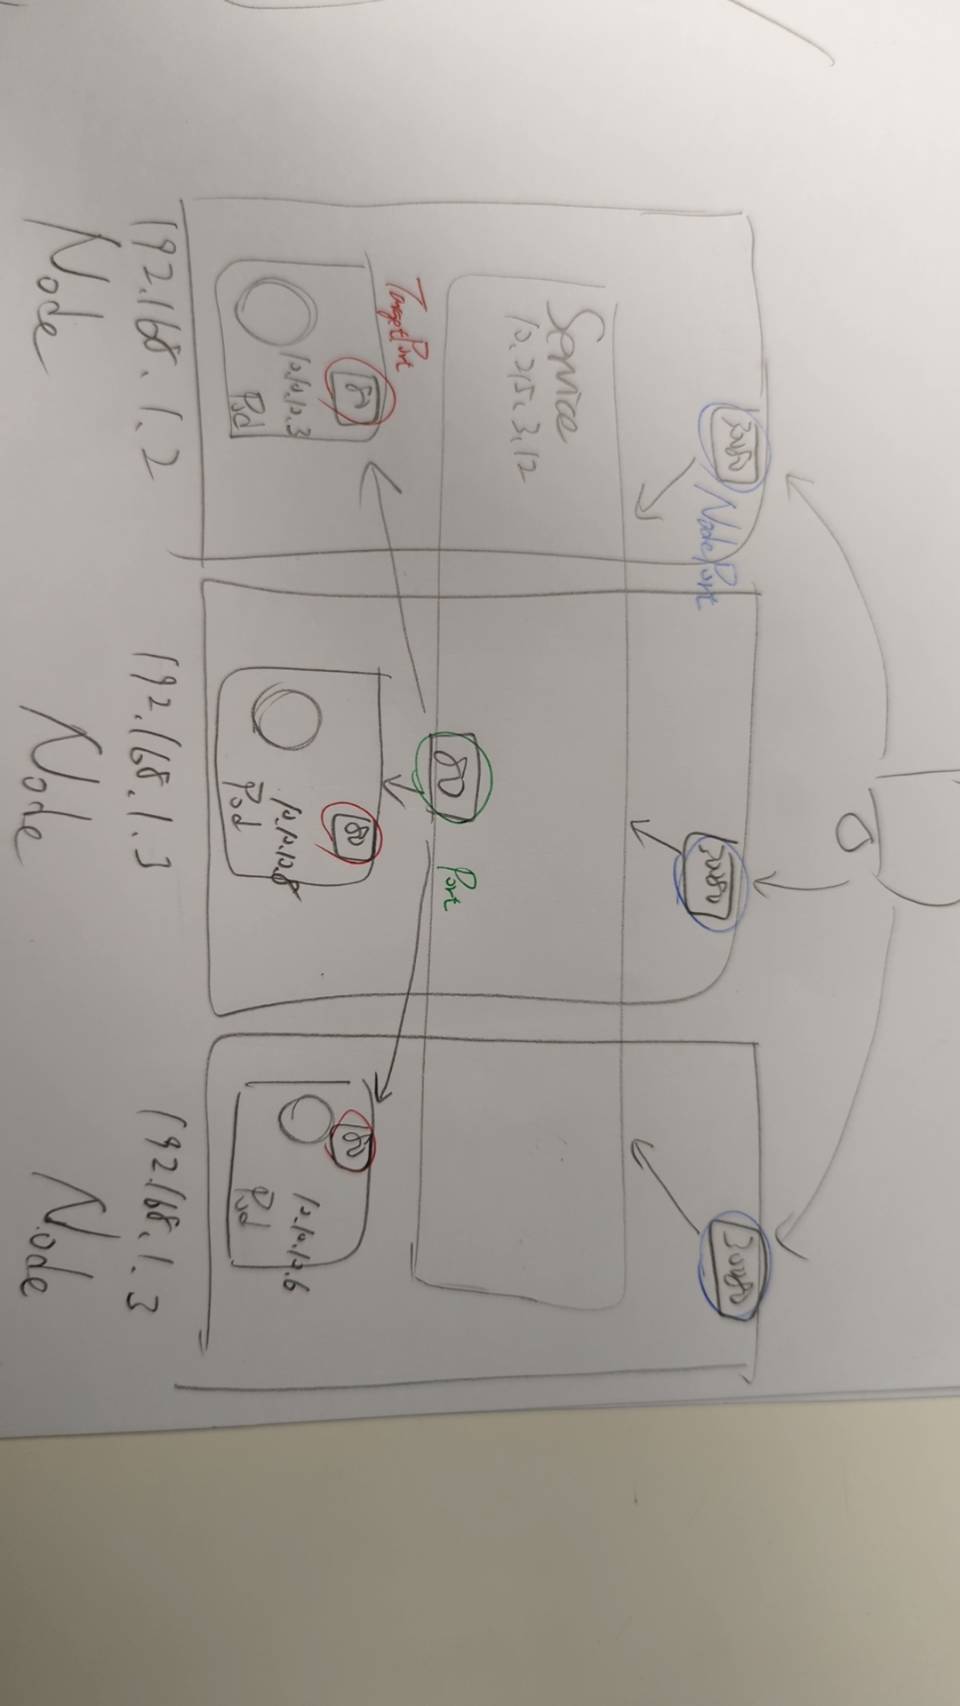 30080
NodePort
30080
30080
Service
10.215.3.12
80
Port
TargetPort
80
10.10.10.3
Pod
80
10.10.10.8
Pod
80
10.10.10.6
Pod
192.168.1.2
Node
192.168.1.3
Node
192.168.1.3
Node